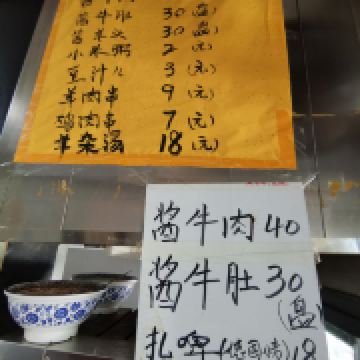 酱牛肚 30(盘)
酱羊头 30(盘)
小米粥 2(元)
豆汁儿 3(元)
羊肉串 9(元)
鸡肉串 7(元)
羊杂汤 18(元)
酱牛肉 40
酱牛肚 30
(盘)
扎啤(德国烤)18